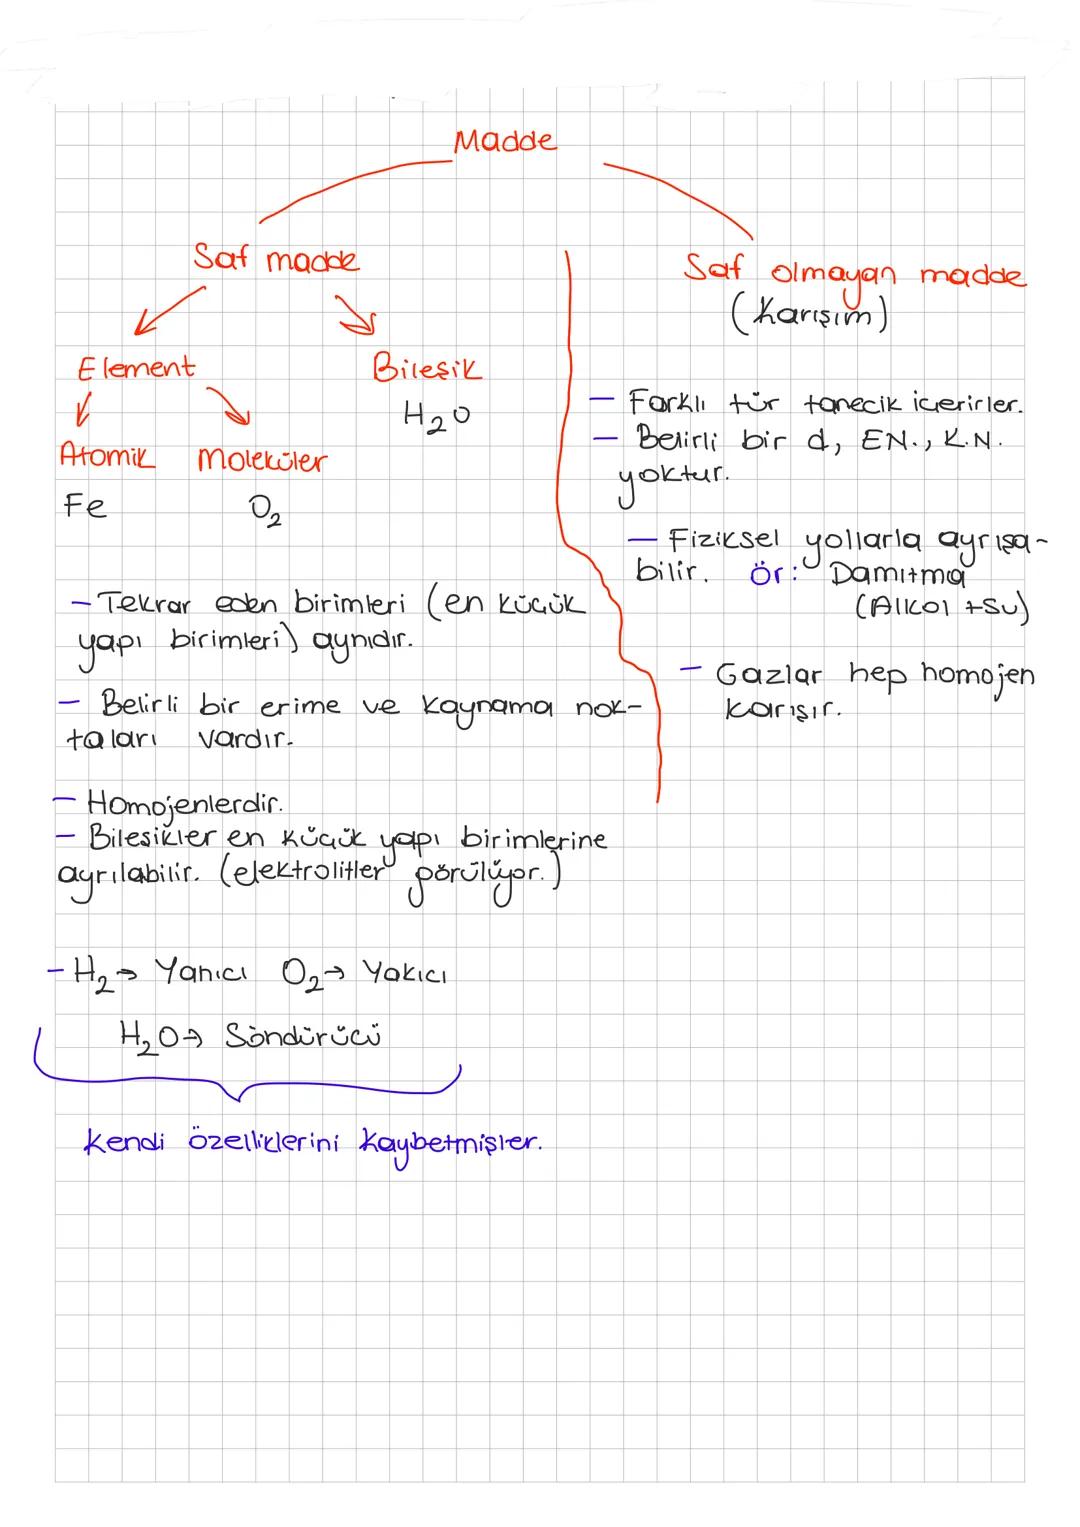 Madde
Saf madde
Element
Bileşik
H₂O
Atomik Moleküler
Fe O₂
- Tekrar eden birimleri (en küçük
yapı birimleri) aynıdır.
- Belirli bir erime ve kaynama nok-
taları vardır.
- Homojenlerdir.
- Bileşikler en küçük yapı birimlerine
ayrılabilir. (elektrolitler görülüyor.)
- H₂→ Yanıcı O₂→ Yakıcı
H₂O→ Söndürücü
Kendi özelliklerini kaybetmişler.
Saf olmayan madde
(Karışım)
- Farklı tür tanecik içerirler.
- Belirli bir d, EN., K.N.
yoktur.
- Fiziksel yollarla ayrışa-
bilir. Ör: Damıtma
(Alkol +Su)
- Gazlar hep homojen
karışır.